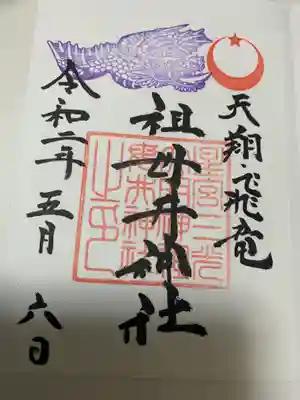 天翔飛竜
祖母井神社
令和二年五月六日